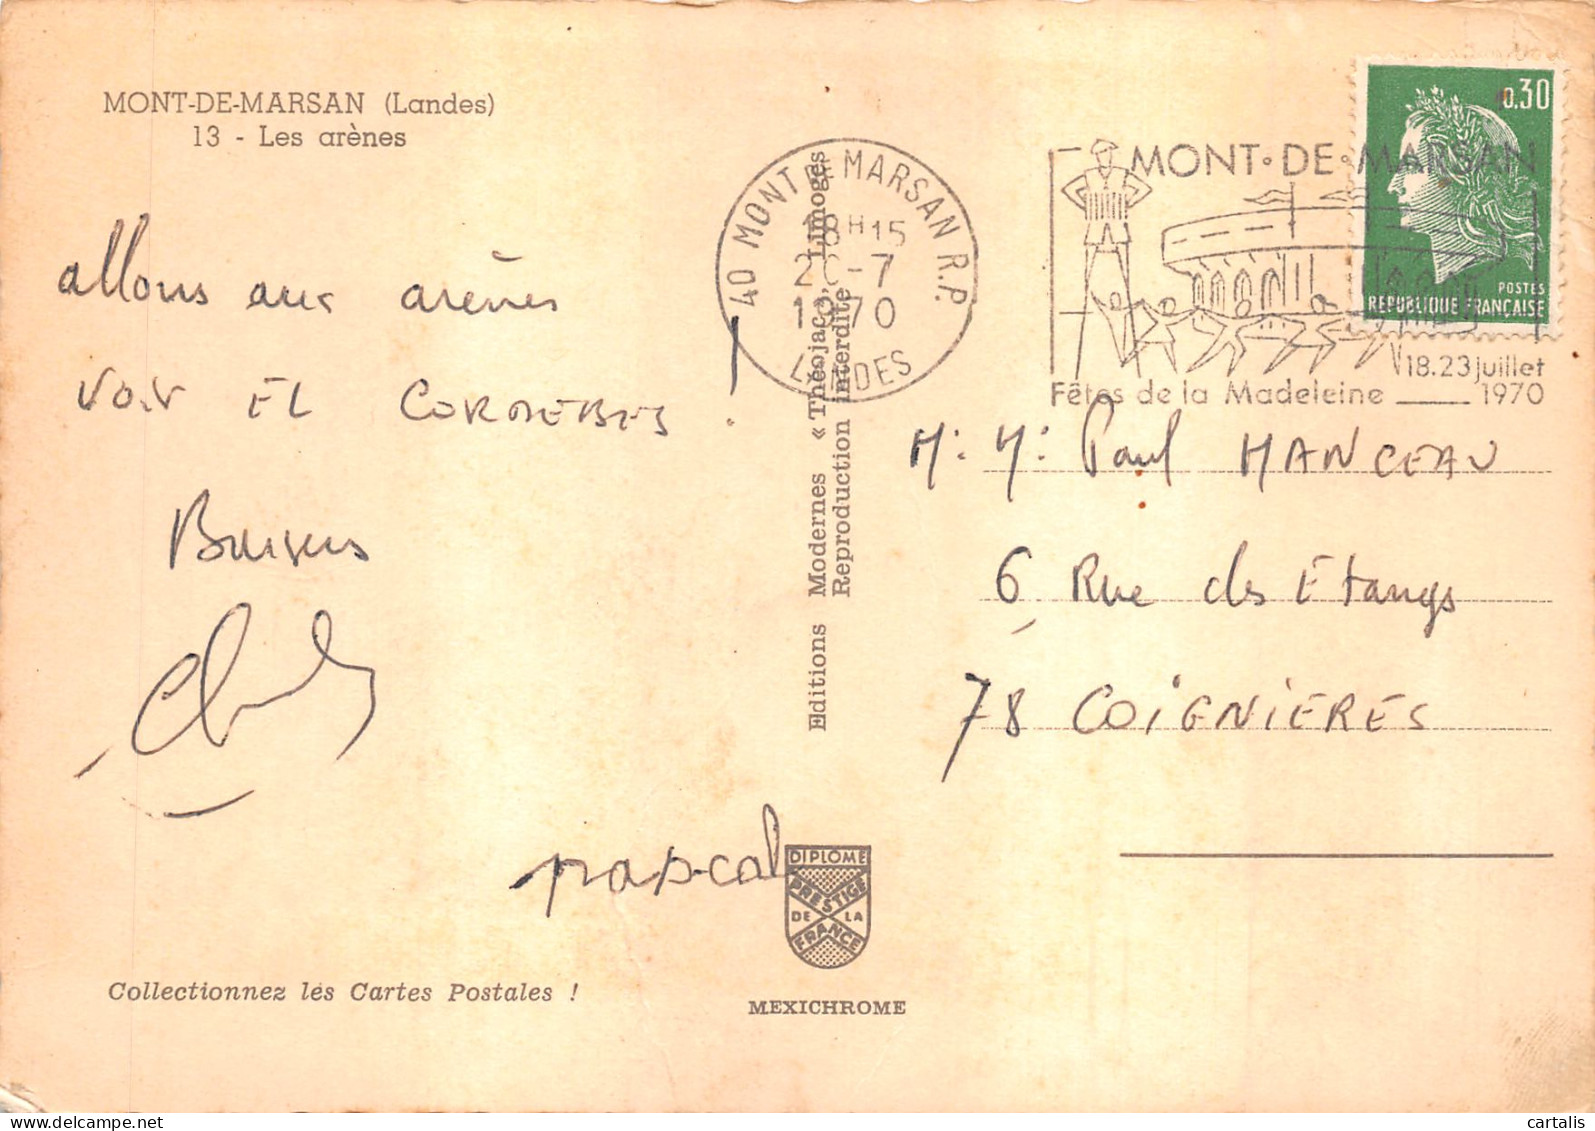 MONT-DE-MARSAN (Landes)
13 - Les arènes
allons aux arènes
voir EL CORDOBES !
Baisers
pascal
Collectionnez les Cartes Postales !
Editions Modernes « Théojac », Limoges
Reproduction interdite
DIPLOME
PRESTIGE
DE LA
FRANCE
MEXICHROME
40 MONT DE MARSAN R.P.
18H15
20-7
1970
LANDES
MONT·DE·MARSAN
18.23 juillet
Fêtes de la Madeleine 1970
0,30
POSTES
REPUBLIQUE FRANÇAISE
M. M. Paul MANCEAU
6 Rue des Etangs
78 COIGNIERES
cartalis
www.delcampe.net